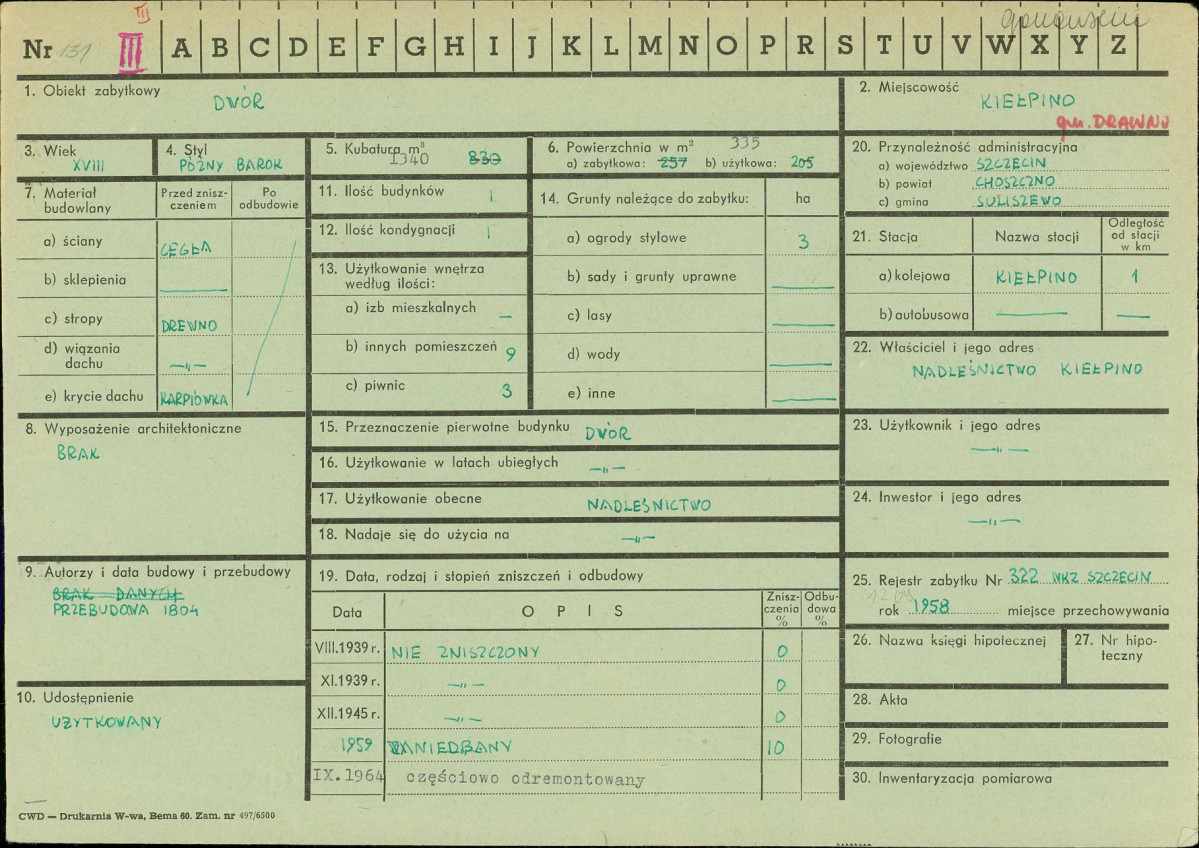 III
Nr 131 III A B C D E F G H I J K L M N O P R S T U V W X Y Z
1. Obiekt zabytkowy
DWÓR
2. Miejscowość
KIEŁPINO
gm. DRAWNO
3. Wiek
XVIII
4. Styl
PÓŹNY BAROK
5. Kubatura m³
1340 830
6. Powierzchnia w m² 335
a) zabytkowa: 257 b) użytkowa: 205
7. Materiał budowlany
Przed znisz-
czeniem
Po
odbudowie
a) ściany CEGŁA
b) sklepienia —
c) stropy DREWNO
d) wiązania
dachu —„—
e) krycie dachu KARPIÓWKA
8. Wyposażenie architektoniczne
BRAK
9. Autorzy i data budowy i przebudowy
BRAK DANYCH
PRZEBUDOWA 1804
10. Udostępnienie
UŻYTKOWANY
11. Ilość budynków 1
12. Ilość kondygnacji 1
13. Użytkowanie wnętrza
według ilości:
a) izb mieszkalnych —
b) innych pomieszczeń 9
c) piwnic 3
14. Grunty należące do zabytku: ha
a) ogrody stylowe 3
b) sady i grunty uprawne —
c) lasy —
d) wody —
e) inne —
15. Przeznaczenie pierwotne budynku DWÓR
16. Użytkowanie w latach ubiegłych —„—
17. Użytkowanie obecne NADLEŚNICTWO
18. Nadaje się do użycia na —„—
19. Data, rodzaj i stopień zniszczeń i odbudowy
Data OPIS Znisz-
czenia
% Odbu-
dowa
%
VIII.1939 r. NIE ZNISZCZONY 0
XI.1939 r. —„— 0
XII.1945 r. —„— 0
1959 ZANIEDBANY 10
IX.1964 częściowo odremontowany
20. Przynależność administracyjna
a) województwo SZCZECIN
b) powiat CHOSZCZNO
c) gmina SULISZEWO
21. Stacja Nazwa stacji Odległość
od stacji
w km
a) kolejowa KIEŁPINO 1
b) autobusowa — —
22. Właściciel i jego adres
NADLEŚNICTWO KIEŁPINO
23. Użytkownik i jego adres
—„—
24. Inwestor i jego adres
—„—
25. Rejestr zabytku Nr 322 WKZ SZCZECIN
rok 1958 miejsce przechowywania
26. Nazwa księgi hipotecznej
27. Nr hipo-
teczny
28. Akta
29. Fotografie
30. Inwentaryzacja pomiarowa
CWD — Drukarnia W-wa, Bema 60. Zam. nr 497/6500